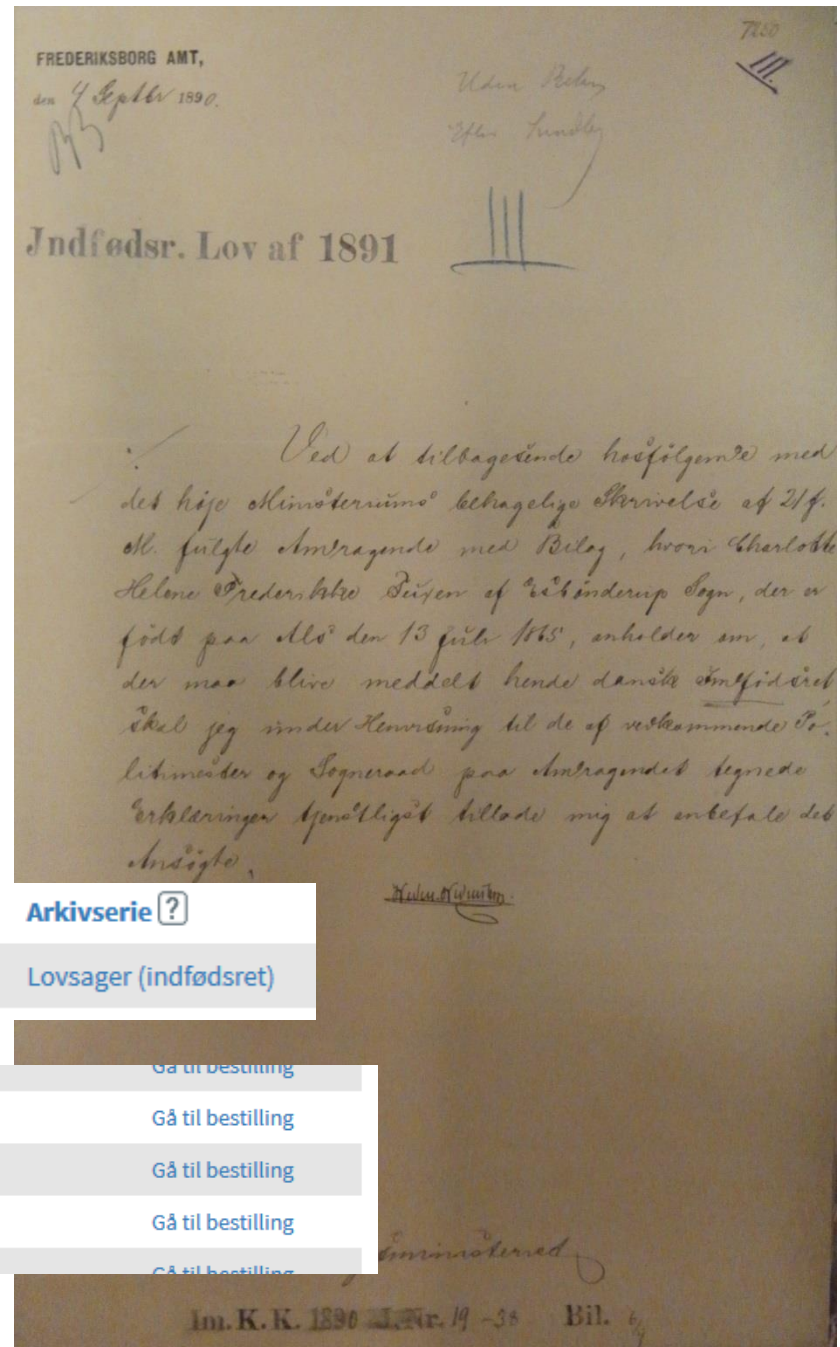 7260
FREDERIKSBORG AMT,
den 4 Septbr 1890.
Uden
Efter
III
Jndfødsr. Lov af 1891
III
Ved at tilbagesende hosfølgende med
det høje Ministeriums behagelige Skrivelse af 21 f.
M. fulgte Andragende med Bilag, hvori Charlotte
Helene Frederikke Tuxen af Esbønderup Sogn, der er
født paa Als den 13 Juli 1865, anholder om, at
der maa blive meddelt hende dansk Indfødsret,
skal jeg under Henvisning til de af vedkommende Po-
litimester og Sogneraad paa Andragendet tegnede
Erklæringer tjenstligst tillade mig at anbefale det
Ansøgte.
Arkivserie ?
Lovsager (indfødsret)
Gå til bestilling
Gå til bestilling
Gå til bestilling
Gå til bestilling
Gå til bestilling
Im. K. K. 1890 J. Nr. 19-38 Bil. 6/9